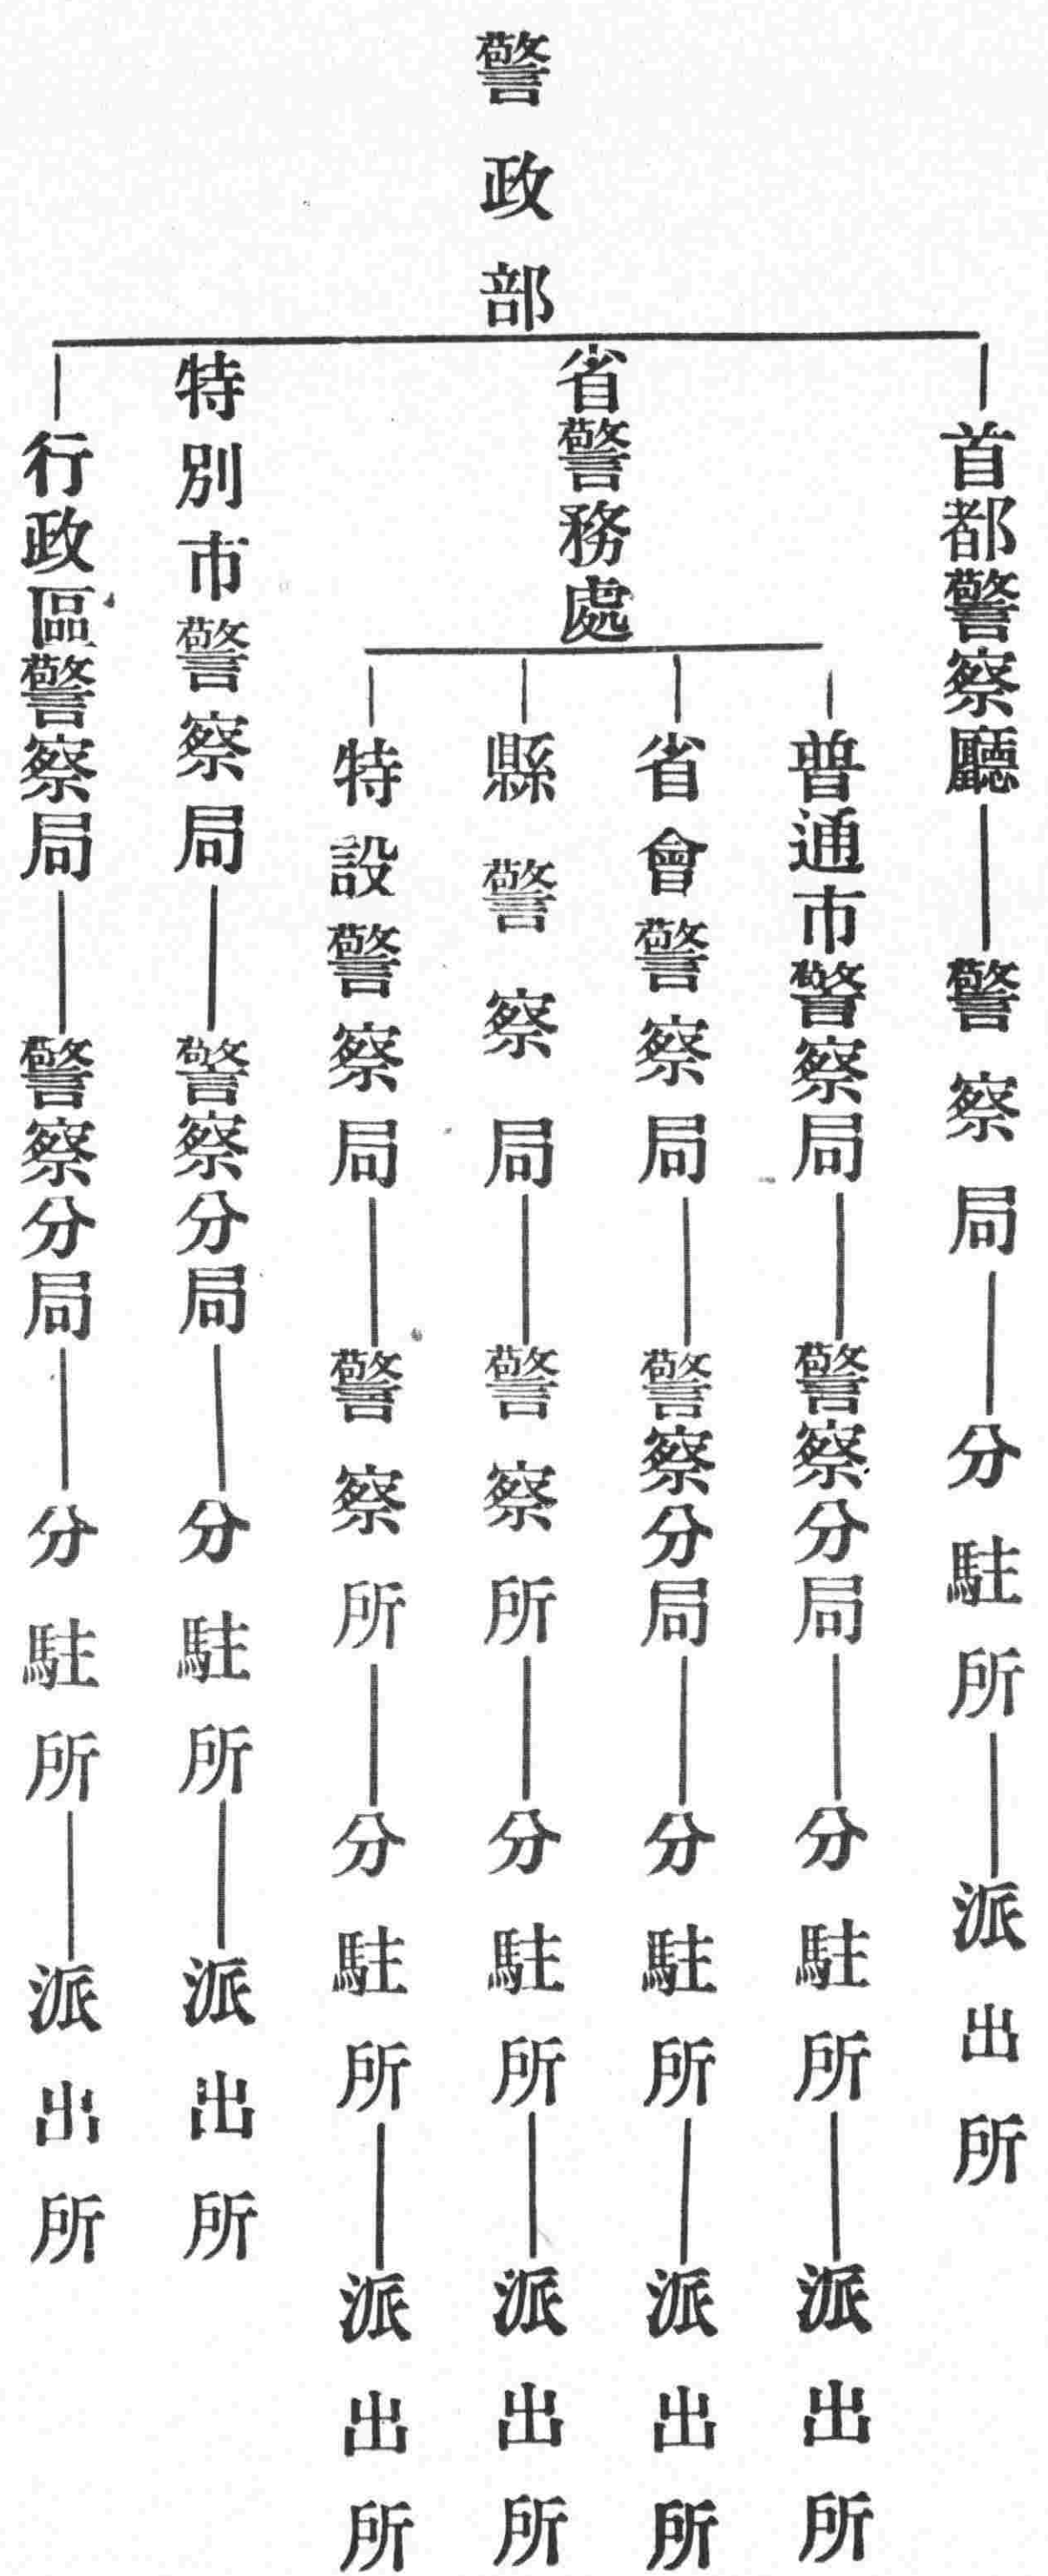 警政部
首都警察廳
警察局
分駐所
派出所
省警務處
普通市警察局
警察分局
分駐所
派出所
省會警察局
警察分局
分駐所
派出所
縣警察局
警察所
分駐所
派出所
特設警察局
警察所
分駐所
派出所
特別市警察局
警察分局
分駐所
派出所
行政區警察局
警察分局
分駐所
派出所